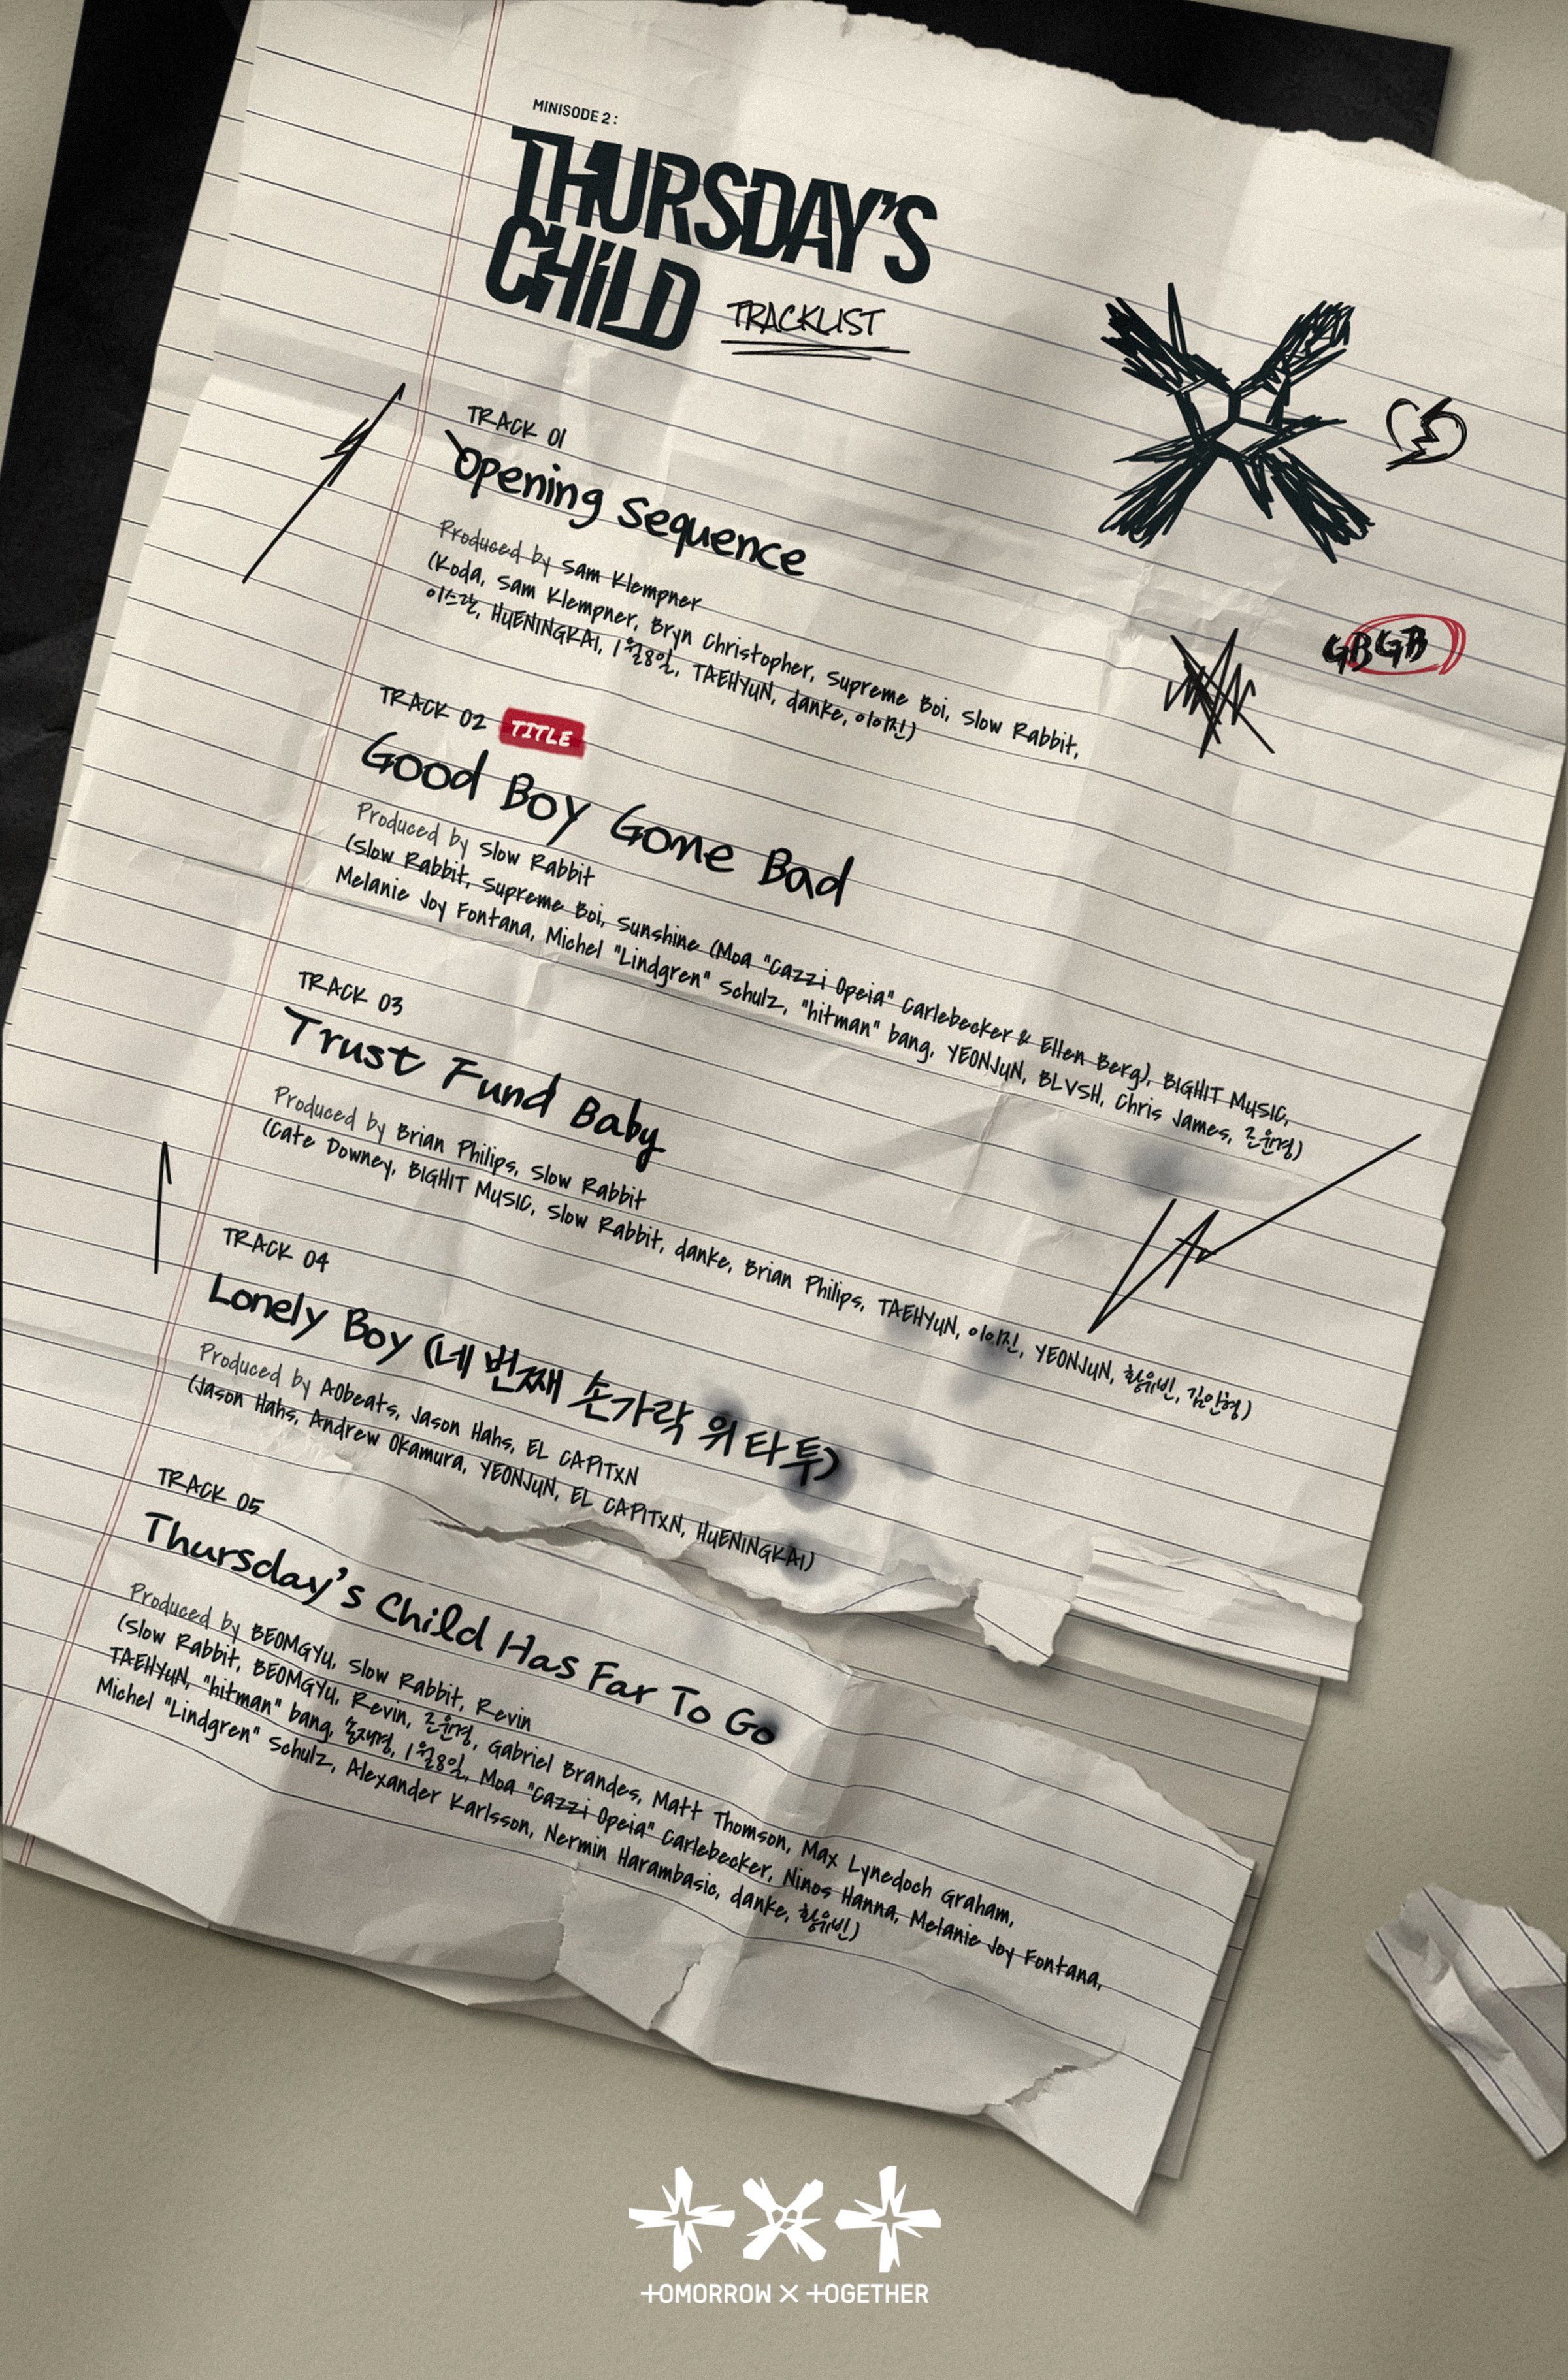 MINISODE 2:
THURSDAY'S
CHiLD
TRACKLIST
TRACK 01
Opening Sequence
Produced by Sam Klempner
(Koda, Sam Klempner, Bryn Christopher, Supreme Boi, Slow Rabbit,
이스란, HUENINGKAI, 1월8일, TAEHYUN, danke, 이이진)
GBGB
TRACK 02 TITLE
Good Boy Gone Bad
Produced by Slow Rabbit
(Slow Rabbit, Supreme Boi, Sunshine (Moa "Cazzi Opeia" Carlebecker & Ellen Berg), BIGHIT MUSIC,
Melanie Joy Fontana, Michel "Lindgren" Schulz, "hitman" bang, YEONJUN, BLVSH, Chris James, 조윤경)
TRACK 03
Trust Fund Baby
Produced by Brian Philips, Slow Rabbit
(Cate Downey, BIGHIT MUSIC, Slow Rabbit, danke, Brian Philips, TAEHYUN, 이이진, YEONJUN, 황유빈, 김인형)
TRACK 04
Lonely Boy (네 번째 손가락 위 타투)
Produced by AObeats, Jason Hahs, EL CAPITXN
(Jason Hahs, Andrew Okamura, YEONJUN, EL CAPITXN, HUENINGKAI)
TRACK 05
Thursday's Child Has Far To Go
Produced by BEOMGYU, Slow Rabbit, Revin
(Slow Rabbit, BEOMGYU, Revin, 조윤경, Gabriel Brandes, Matt Thomson, Max Lynedoch Graham,
TAEHYUN, "hitman" bang, 송재경, 1월8일, Moa "Cazzi Opeia" Carlebecker, Ninos Hanna, Melanie Joy Fontana,
Michel "Lindgren" Schulz, Alexander Karlsson, Nermin Harambasic, danke, 황유빈)
TOMORROW X TOGETHER